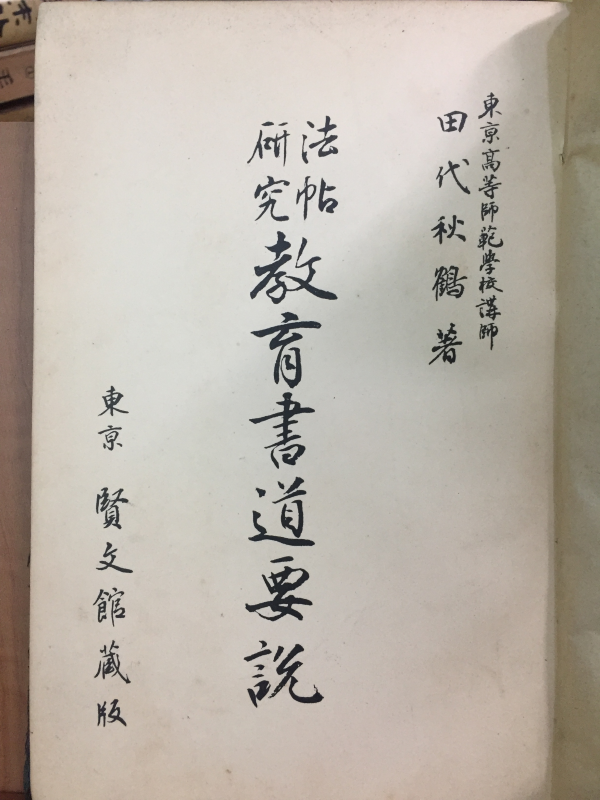 東京高等師範學校講師
田代秋鶴著
法帖
研究
教育書道要説
東京 賢文館藏版